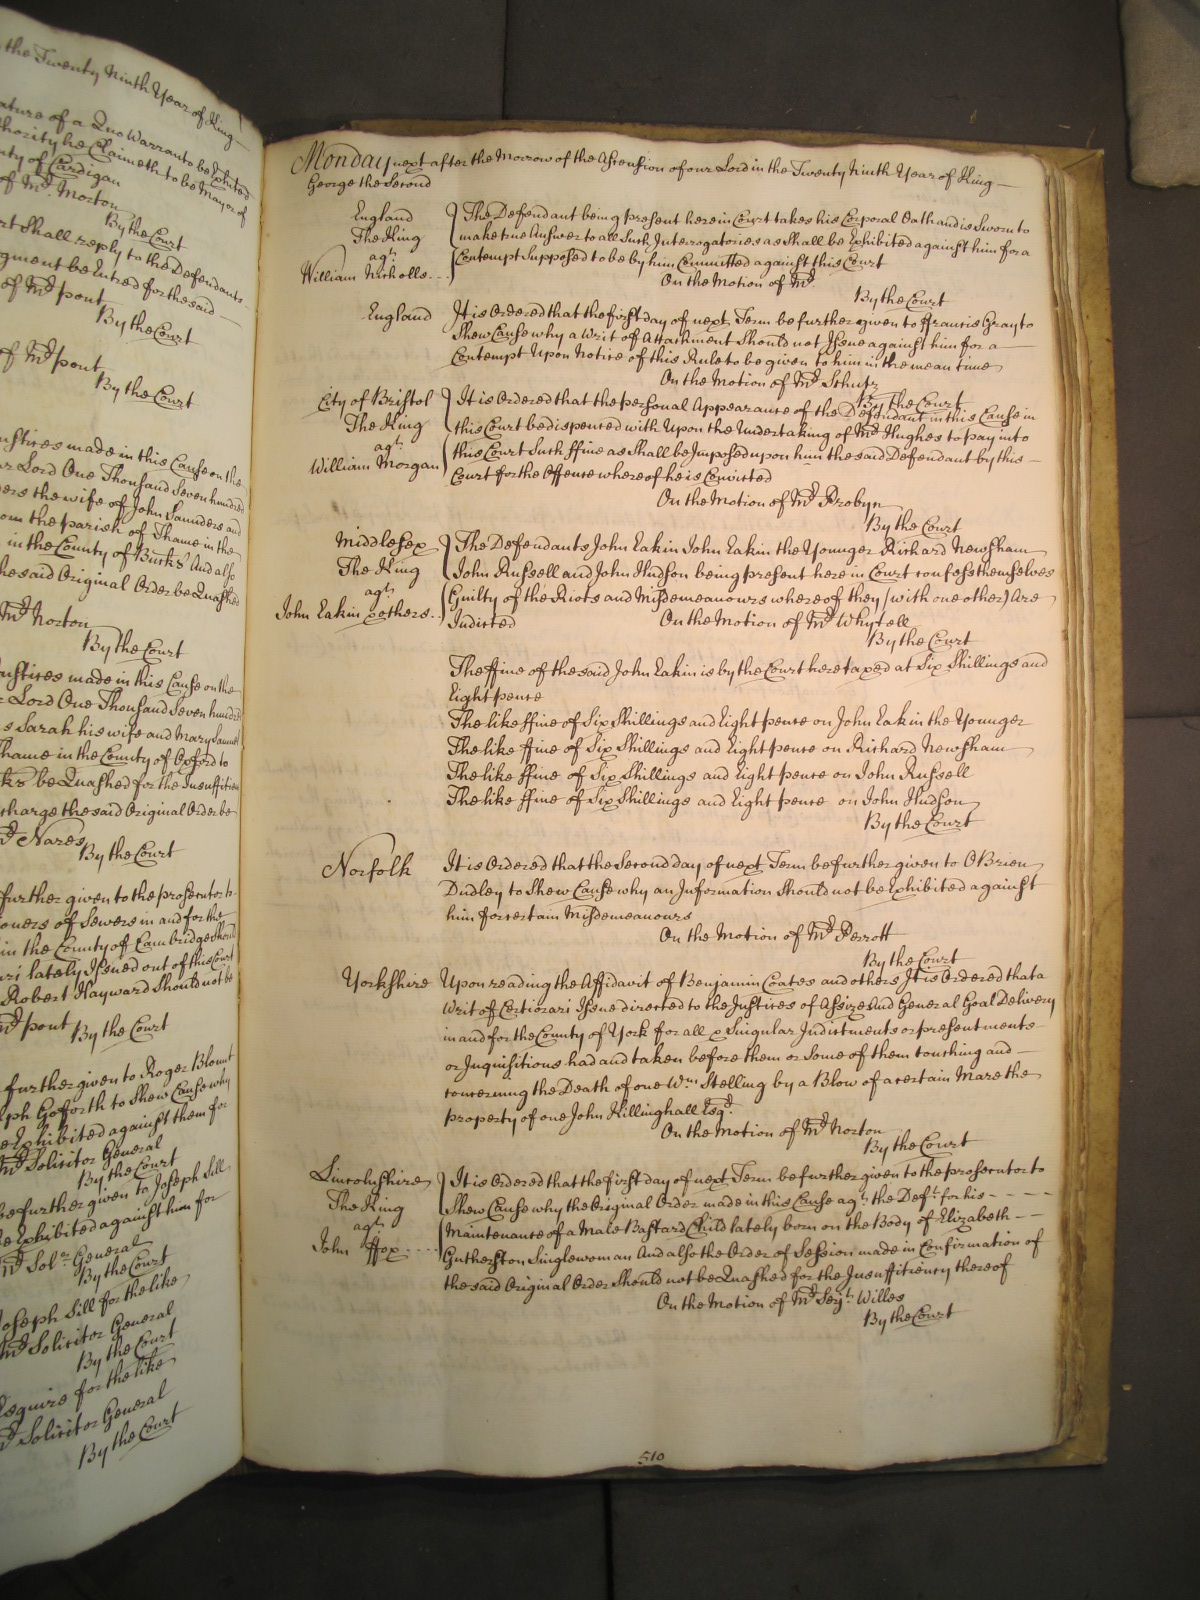 the Twenty Ninth Year of King
ature of a Quo Warranto be Exhited
thority he Claimeth to be Mayor of
nty of Cardigan
of Mr. Morton
By the Court
rt Shall reply to the Defendants
gment be Entred for the said
of Mr. pont
By the Court
of Mr. pont
By the Court
ustices made in this Cause on the
ur Lord One Thousand Seven hundred
ers the wife of John Saunders and
om the parish of Thame in the
in the County of Bucks And also
he said Original Order be Quashed
Mr. Norton
By the Court
ustices made in this Cause on the
r Lord One Thousand Seven hundred
s Sarah his wife and Mary
Thame in the County of Oxford to
ks be Quashed for the Insufficien
charge the said Original Order be
Mr. Nares
By the Court
further given to the prosecutor
oners of Sewers in and for the
in the County of Cambridge Should
ari lately Issued out of this Court
Robert Hayward Should not be
Mr. pont By the Court
further given to Roger Blount
lph Goforth to Shew Cause why
e Exhibited against them for
Mr. Solicitor General
By the Court
be further given to Joseph Sill
e Exhibited against him for
Mr. Solr. General
By the Court
Joseph Sill for the like
Mr. Solicitor General
By the Court
Esquire for the like
Mr. Solicitor General
By the Court
Monday next after the Morrow of the Ascension of our Lord in the Twenty Ninth Year of King
George the Second
England The Defendant being present here in Court takes his Corporal Oath and is Sworn to
The King make true Answer to all Such Interrogatories as Shall be Exhibited against him for a
agt. Contempt Supposed to be by him Committed against this Court
William Nicholls On the Motion of Mr.
By the Court
England It is Ordered that the first day of next Term be further given to ffrancis Gray to
Shew Cause why a Writ of Attachment Should not Issue against him for a
Contempt Upon Notice of this Rule to be given to him in the mean time
On the Motion of Mr. Schutz
By the Court
City of Bristol It is Ordered that the personal Appearance of the Defendant in this Cause in
The King this Court be dispenced with Upon the Undertaking of Mr. Hughes to pay into
agt. this Court Such ffine as Shall be Imposed upon him the said Defendant by this
William Morgan Court for the Offence whereof he is Convicted
On the Motion of Mr. Probyn
By the Court
Middlesex The Defendants John Eakin John Eakin the Younger Richard Newsham
The King John Russell and John Hudson being present here in Court confess themselves
agt. Guilty of the Riots and Misdemeanours whereof they (with one other) Are
John Eakin & others Indicted On the Motion of Mr. Whytell
By the Court
The ffine of the said John Eakin is by the Court here taxed at Six Shillings and
Eight pence
The like ffine of Six Shillings and Eight pence on John Eakin the Younger
The like ffine of Six Shillings and Eight pence on Richard Newsham
The like ffine of Six Shillings and Eight pence on John Russell
The like ffine of Six Shillings and Eight pence on John Hudson
By the Court
Norfolk It is Ordered that the Second day of next Term be further given to OBrien
Dudley to Shew Cause why an Information Should not be Exhibited against
him for certain Misdemeanours
On the Motion of Mr. Perrott
By the Court
Yorkshire Upon reading the Affidavit of Benjamin Coates and others It is Ordered that a
Writ of Certiorari Issue directed to the Justices of Assizes And General Goal Delivery
in and for the County of York for all & Singular Indictments or presentments
or Inquisitions had and taken before them or Some of them touching and
concerning the Death of one Wm. Stelling by a Blow of a certain Mare the
property of one John Killinghall Esqr.
On the Motion of Mr. Norton
By the Court
Lincolnshire It is Ordered that the first day of next Term be further given to the prosecutor to
The King Shew Cause why the Original Order made in this Cause agt. the Deft. for his
agt. Maintenance of a Male Bastard Child lately born on the Body of Elizabeth
John ffox Gutherson Singlewoman And also the Order of Session made in Confirmation of
the said Original Order Should not be Quashed for the Insufficiency thereof
On the Motion of Mr. Serjt. Willes
By the Court
510